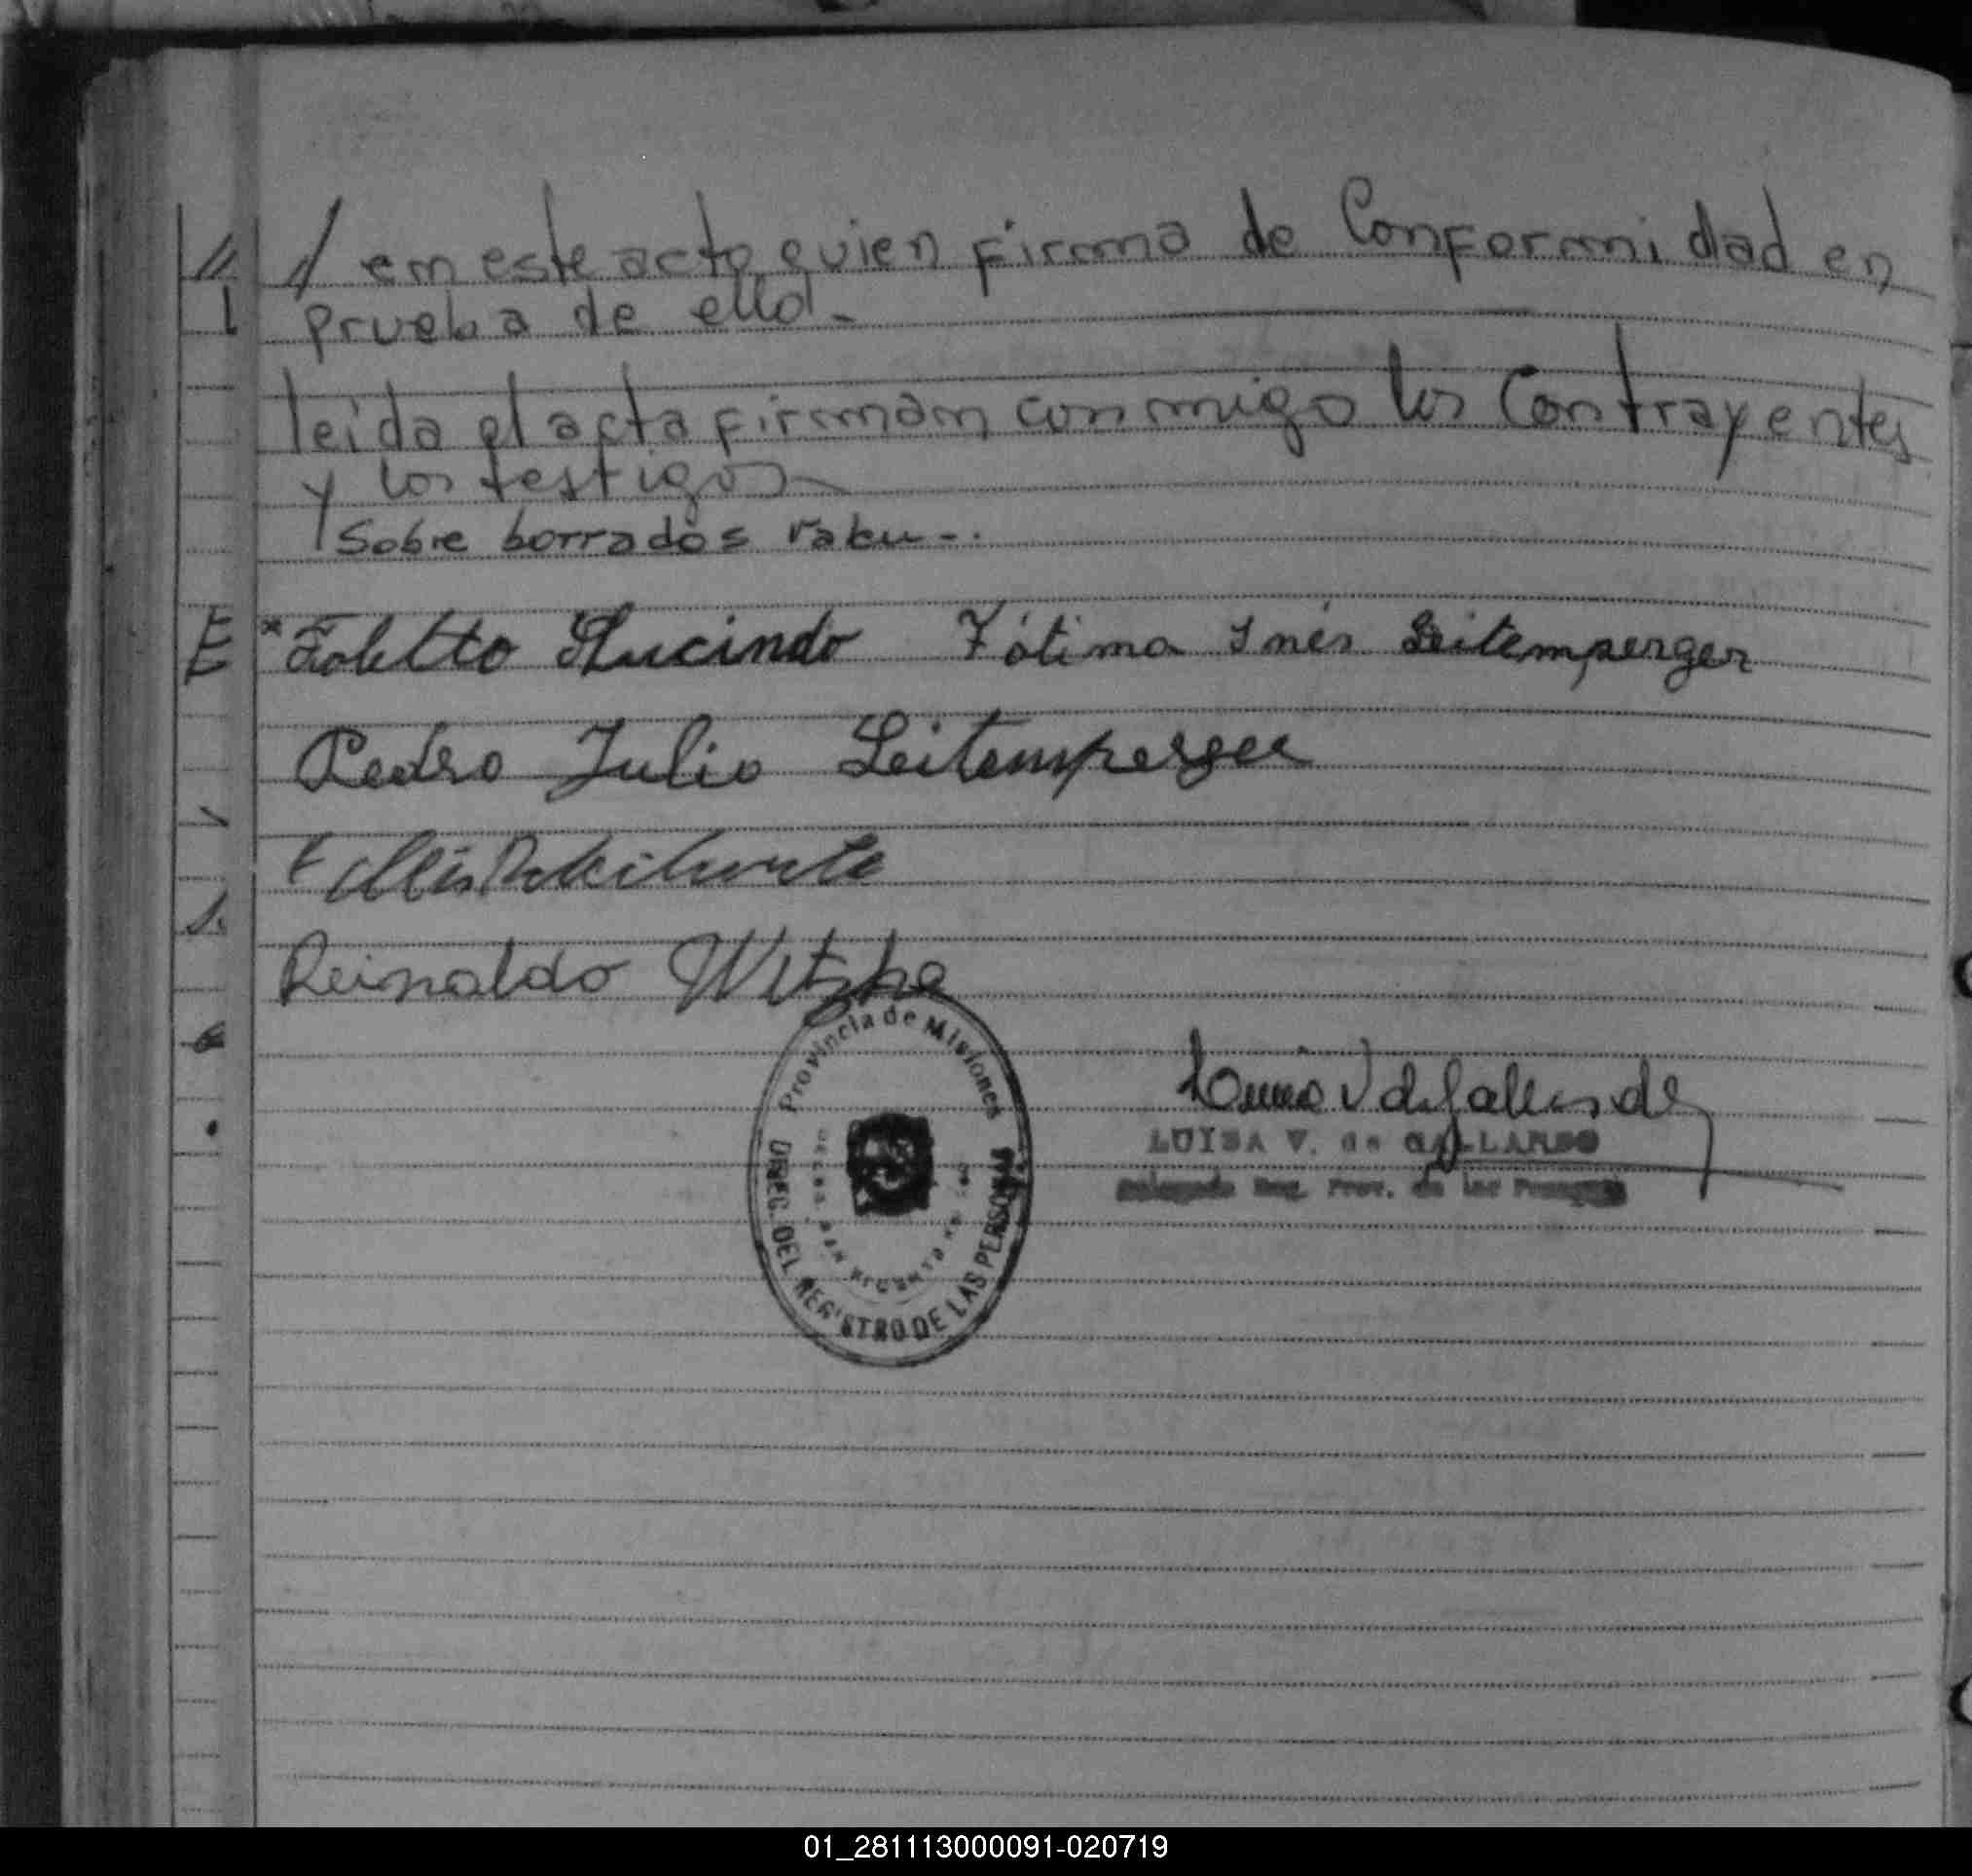 // en este acto quien firma de Conformidad en
prueba de ello.-
leída el acta firman conmigo los Contrayentes
y los testigos
Sobre borrados
Foletto Lucindo Fátima Inés Leitemperger
Pedro Julio Leitemperger
Reinaldo Witzke
Provincia de Misiones
DIREC. DEL REGISTRO DE LAS PERSONAS
LUISA V. de GALLARDO
Delegada Reg. Prov. de las Personas
01_281113000091-020719